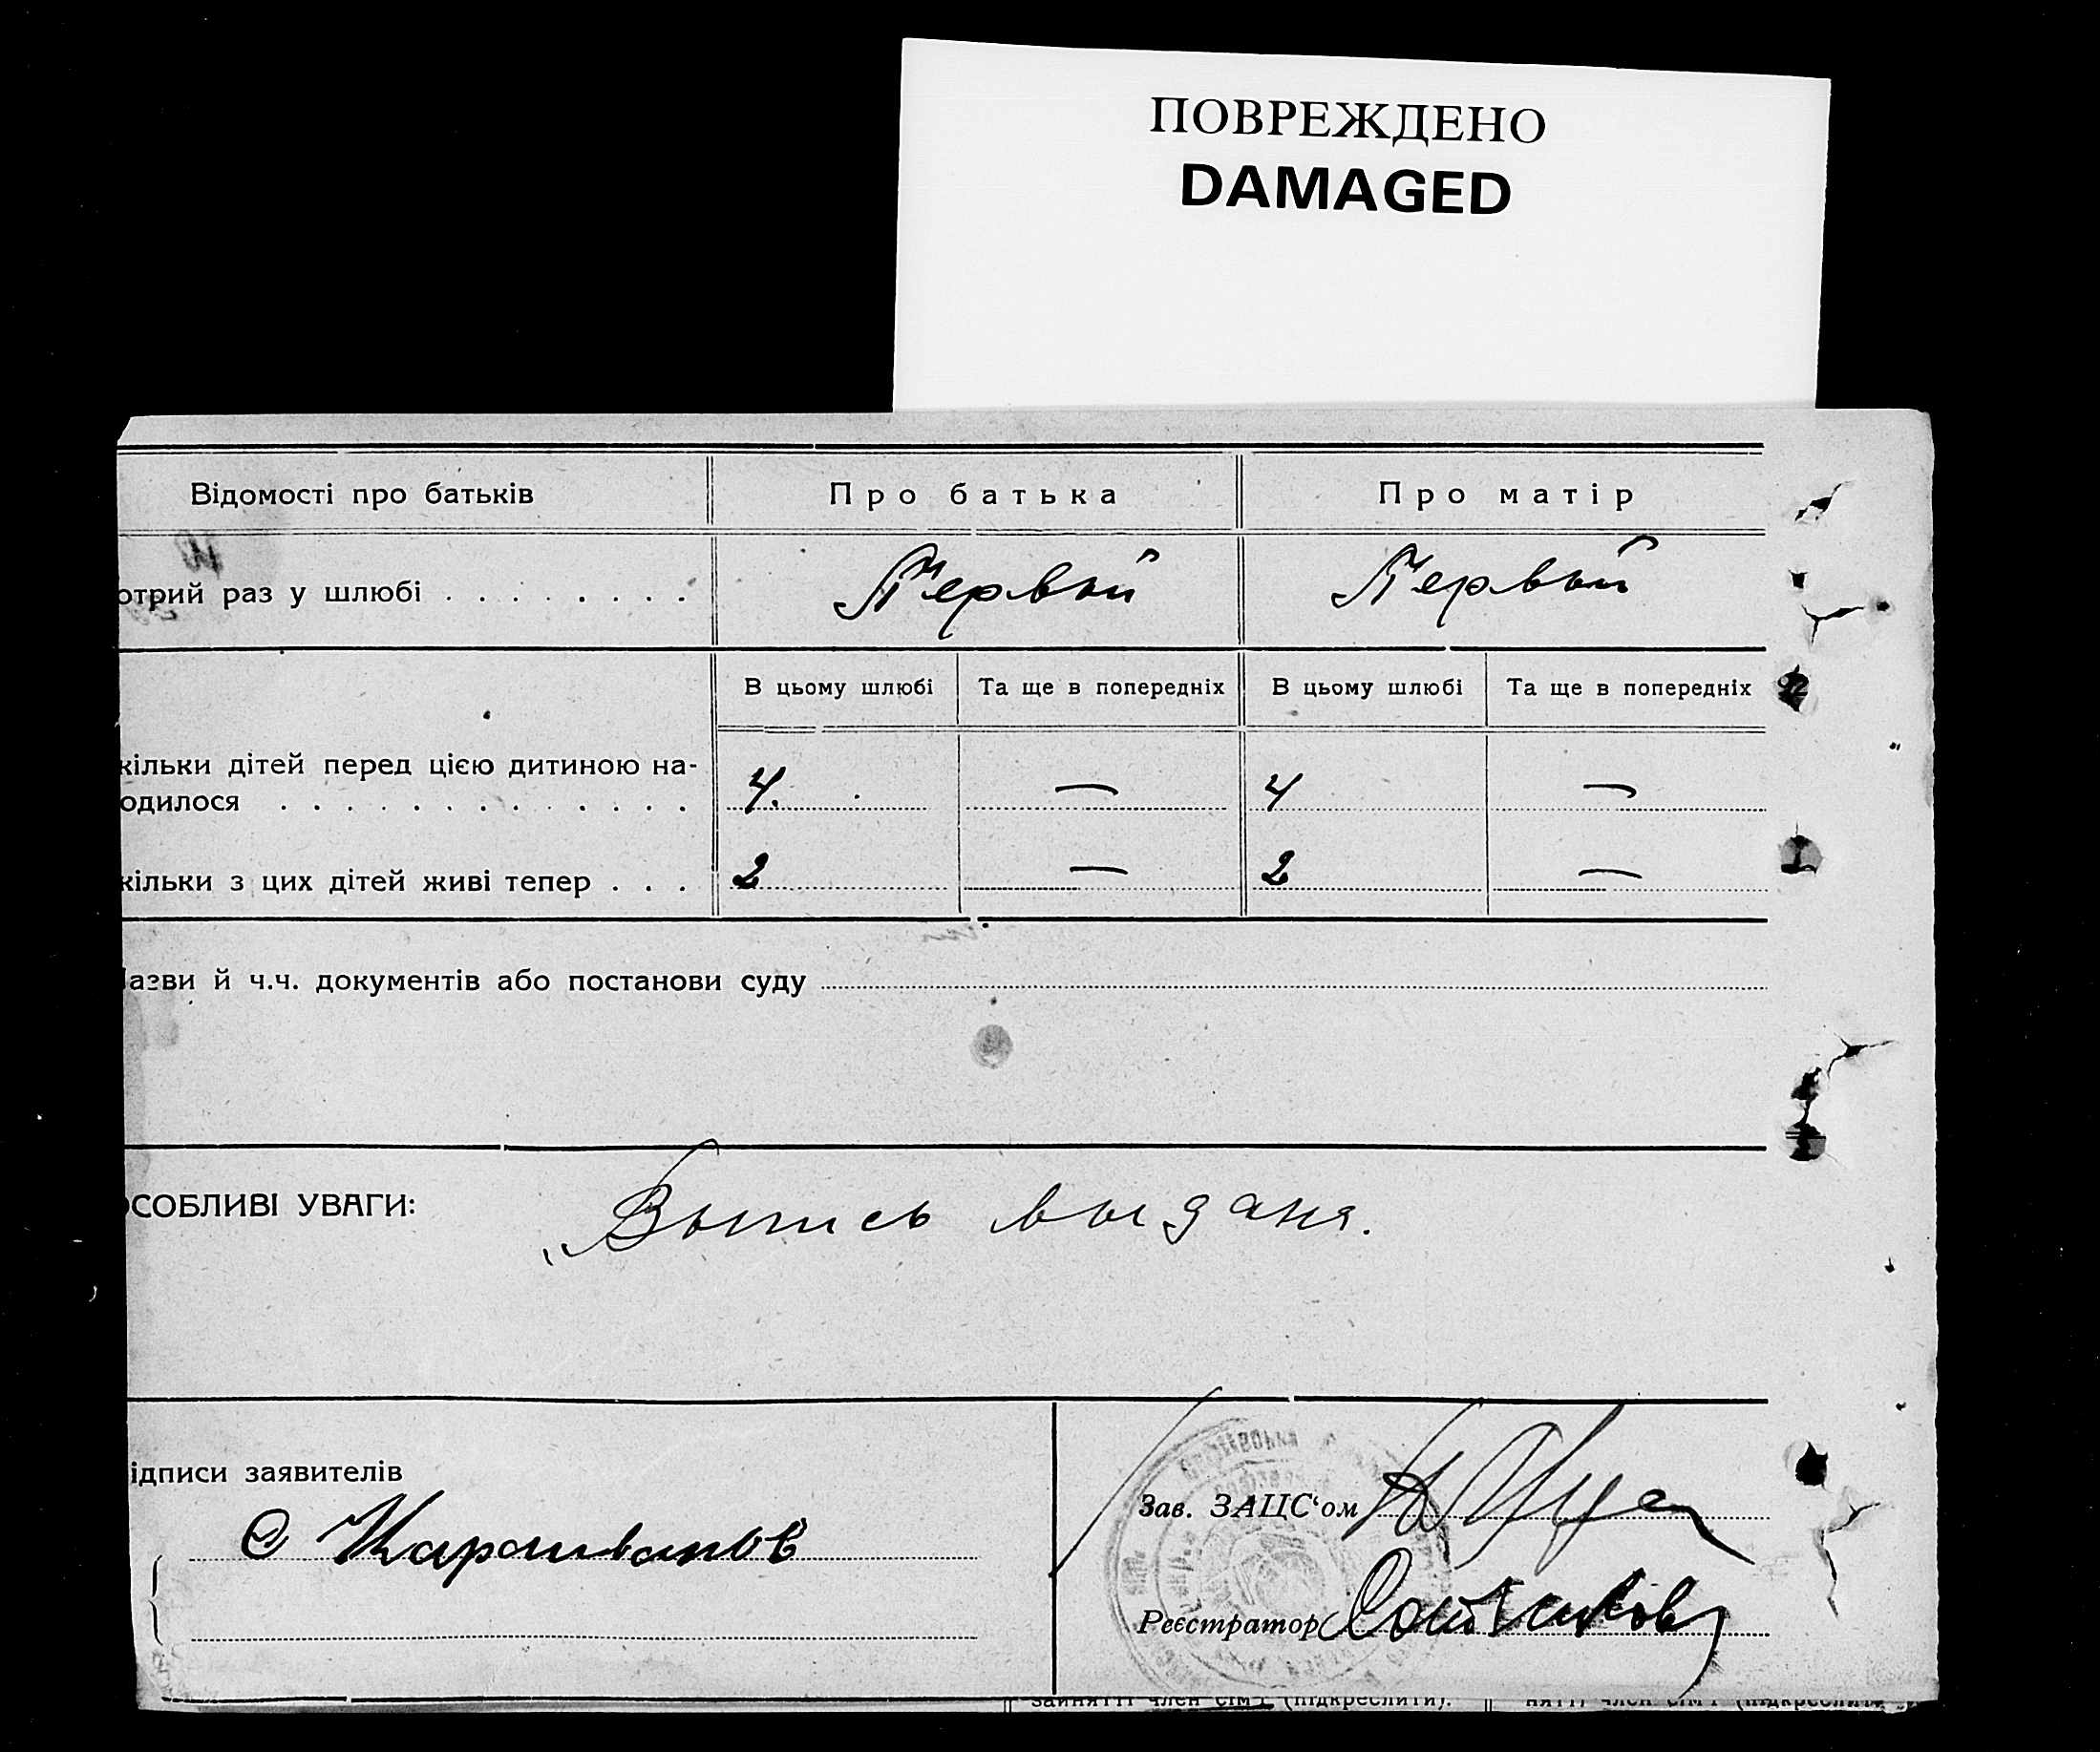 ПОВРЕЖДЕНО
DAMAGED
Відомості про батьків
Про батька
Про матір
отрий раз у шлюбі . . . . . . . .
Первый
Первый
В цьому шлюбі
Та ще в попередніх
В цьому шлюбі
Та ще в попередніх
кільки дітей перед цією дитиною на-
одилося . . . . . . . . . . . . .
4.
—
4
—
кільки з цих дітей живі тепер . . .
2
—
2
—
азви й ч.ч. документів або постанови суду
ОСОБЛИВІ УВАГИ:
„Выпись выдана.
ідписи заявителів
Зав. ЗАЦС‘ом
Реєстратор
зайнятті член сім'ї (підкреслити).
нятті член сім'ї (підкреслити